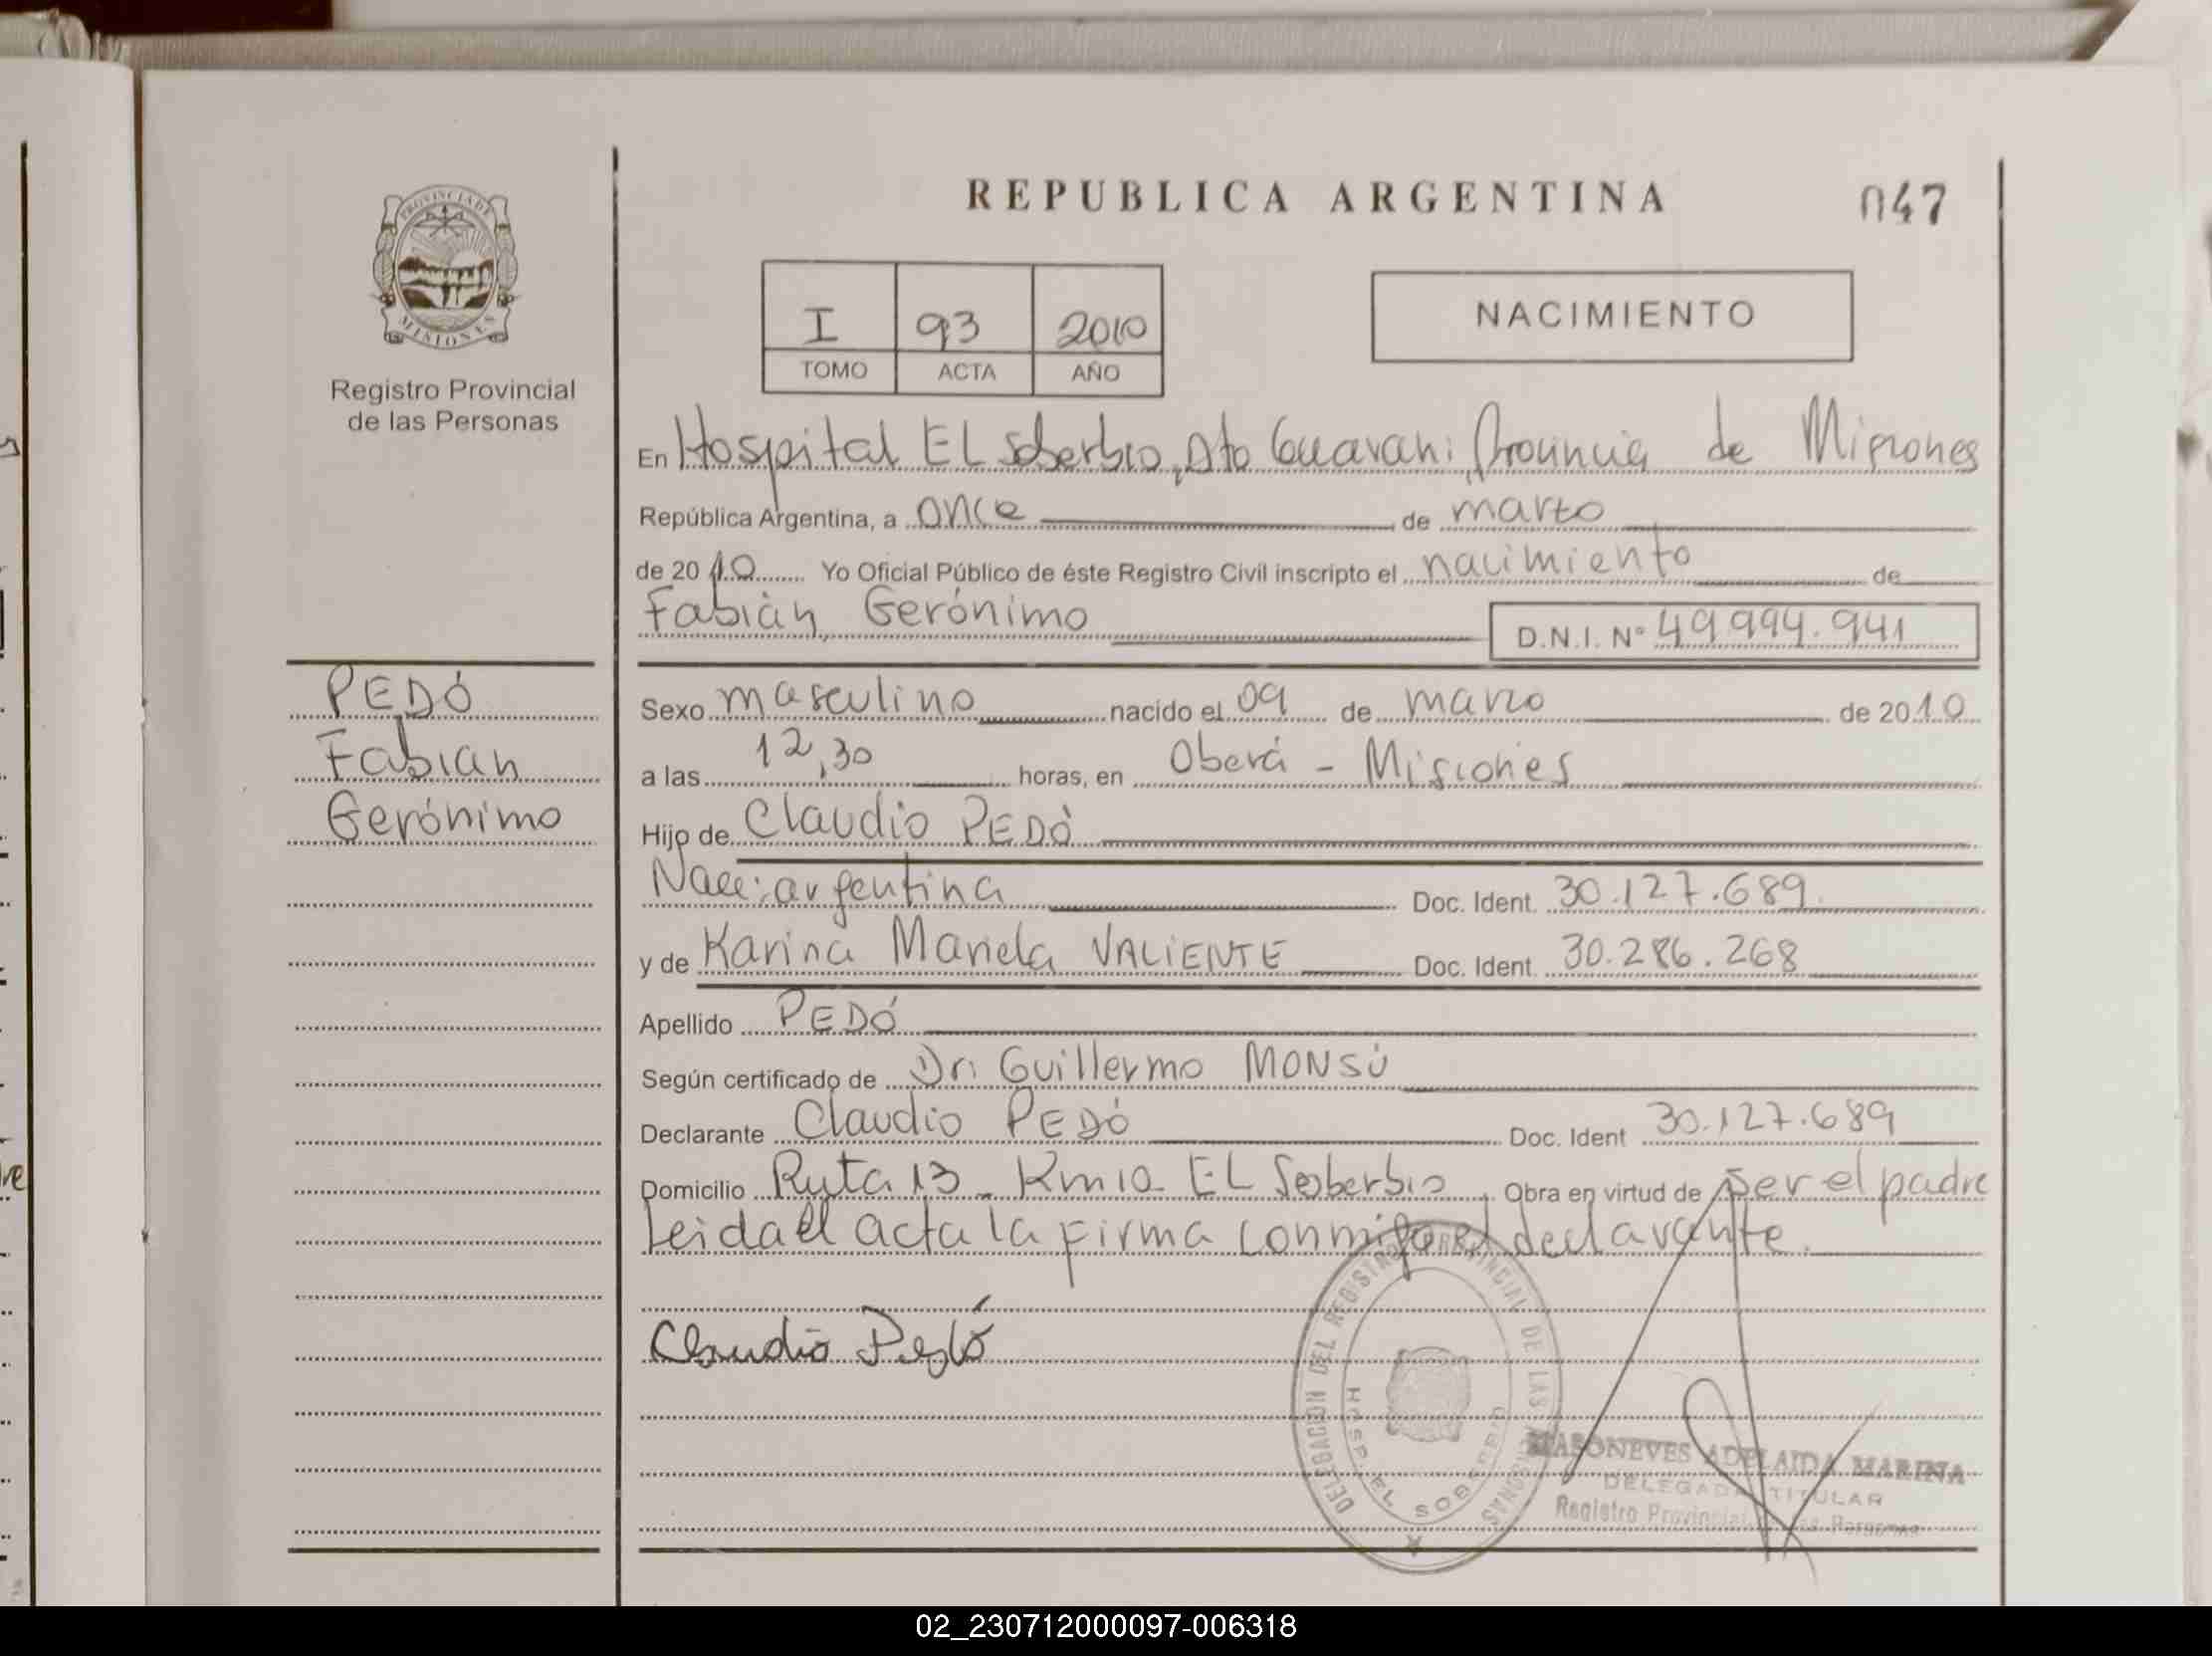 PROVINCIA DE
MISIONES
Registro Provincial
de las Personas
REPUBLICA ARGENTINA
047
I 93 2010
TOMO ACTA AÑO
NACIMIENTO
En Hospital EL Soberbio, Dto Guarani, Provincia de Misiones
República Argentina, a once de marzo
de 2010 Yo Oficial Público de éste Registro Civil inscripto el nacimiento de
Fabián, Gerónimo
D.N.I. Nº 49.994.941
PEDÓ
Fabián
Gerónimo
Sexo masculino nacido el 09 de marzo de 2010
a las 12,30 horas, en Oberá - Misiones
Hijo de Claudio PEDÓ
Nac: argentina Doc. Ident. 30.127.689
y de Karina Mariela VALIENTE Doc. Ident. 30.286.268
Apellido PEDÓ
Según certificado de Dr. Guillermo MONSÚ
Declarante Claudio PEDÓ Doc. Ident 30.127.689
Domicilio Ruta 13 - Km 10 EL Soberbio, Obra en virtud de ser el padre
Leida el acta la firma conmigo el declarante.
Claudio Pedó
DELEGACION DEL REGISTRO PROVINCIAL DE LAS PERSONAS
HOSP. EL SOBERBIO
ADELAIDA MARINA
DELEGADA TITULAR
Registro Provincial de las Personas
02_230712000097-006318